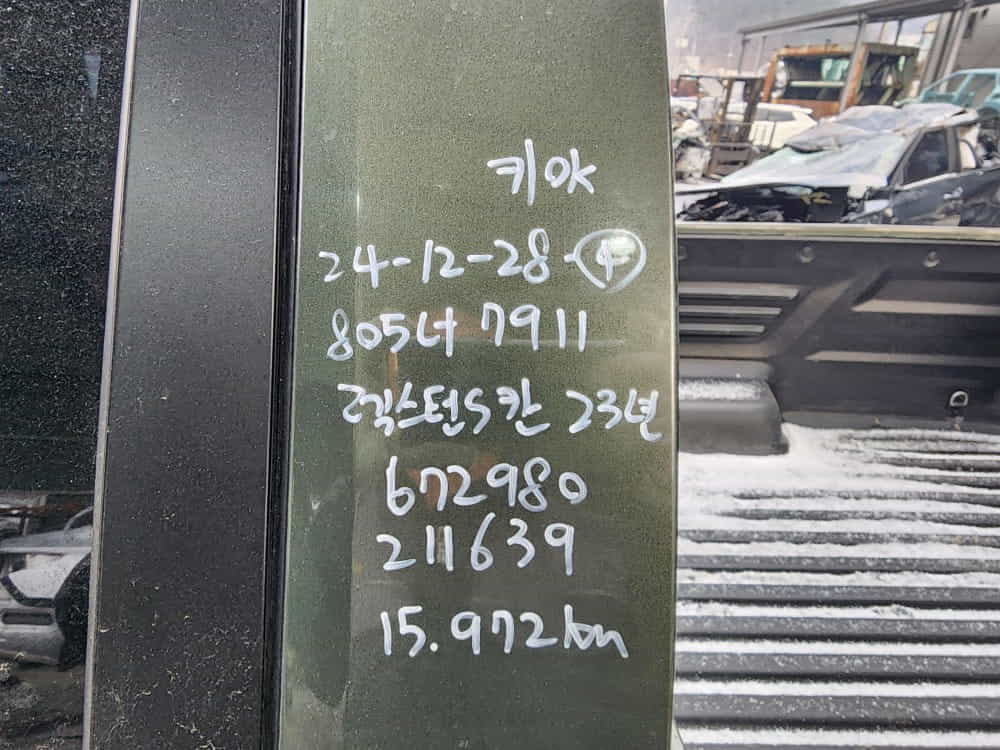 키OK
24-12-28-④
805너 7911
렉스턴S칸 23년
672980
211639
15.972km